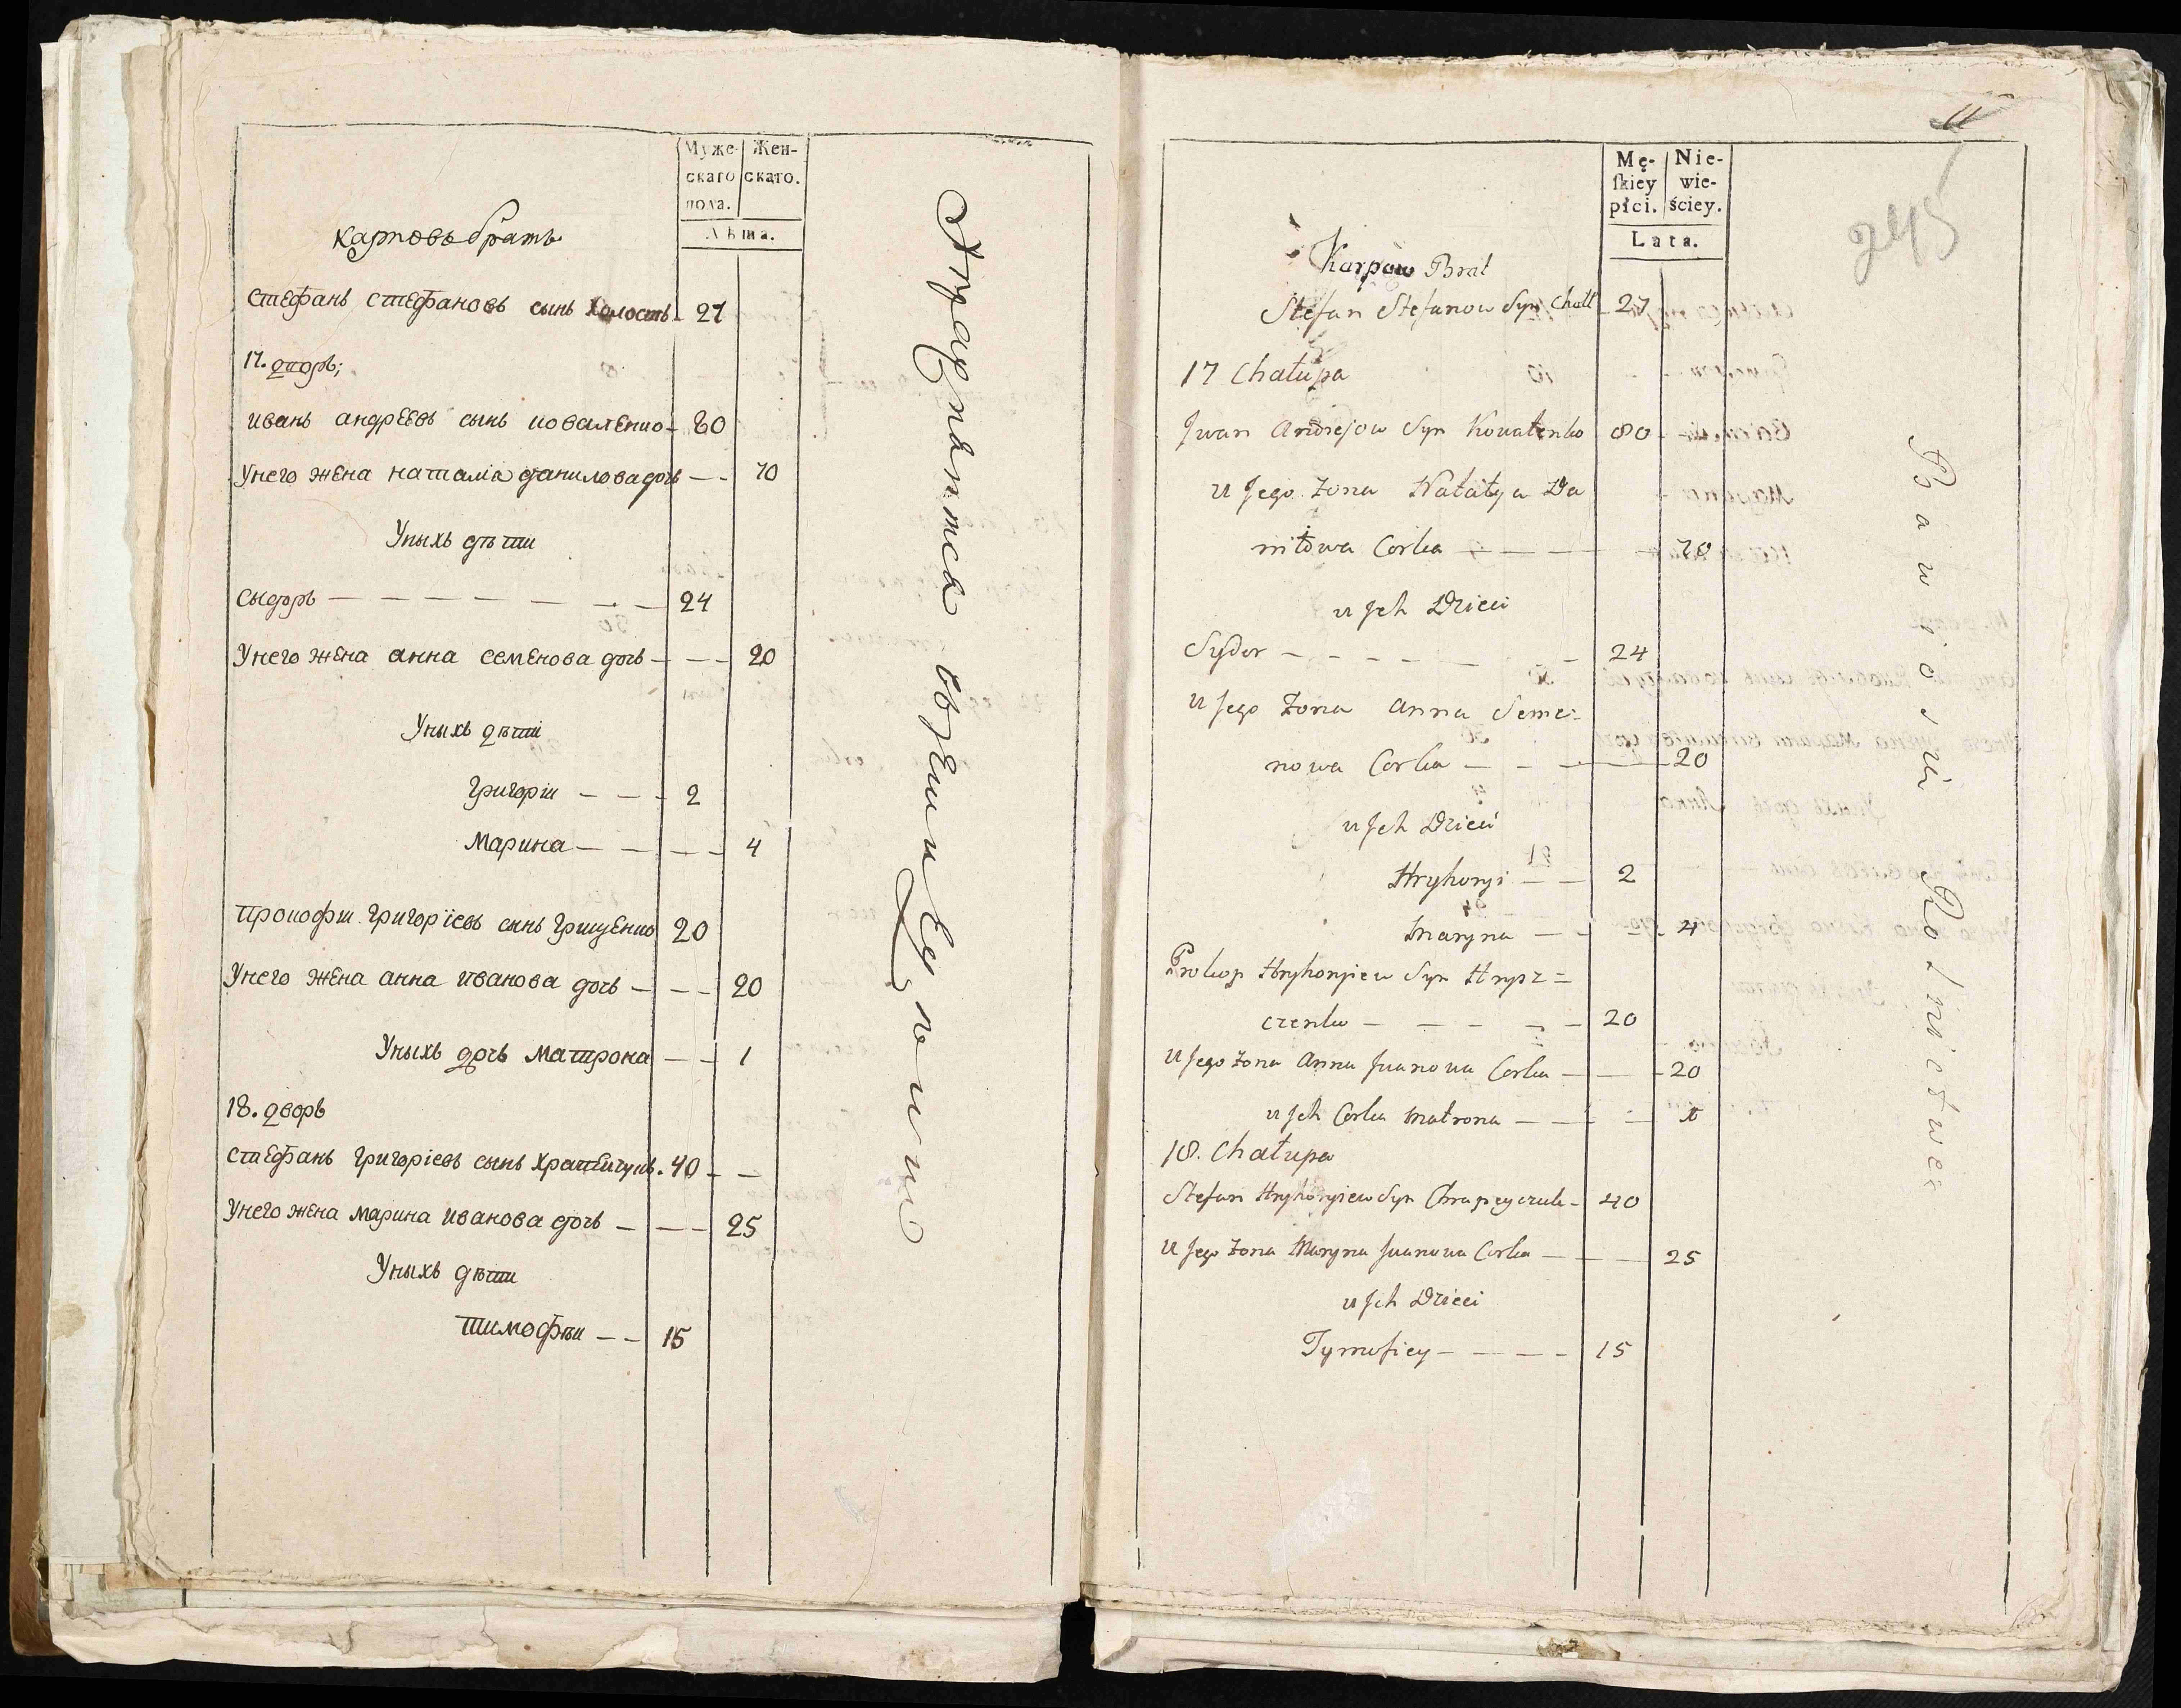 Муже- Жен-
скаго скаго.
пола.
Лѣта.
карповъ братъ
стефанъ стефановъ сынъ холостъ 27
17. дворъ;
иванъ андреевъ сынъ коваленко 80
Унего жена наталіа данилова дочь — 70
Уныхъ дѣти
Сыдоръ — 24
Унего жена анна семенова дочь — 20
Уныхъ дѣти
григорій — 2
марина — 4
прокофій григоріевъ сынъ грищенко 20
Унего жена анна иванова дочь — 20
Уныхъ дочь матрона — 1
18. дворъ
стефанъ григоріевъ сынъ 40
Унего жена марина иванова дочь — 25
Уныхъ дѣти
тимофѣй — 15
Упражняются въ
11
245
Mę- Nie-
ſkiey wie-
płci. ściey.
Lata.
Karpow Brat
Stefan Stefanow Syn Choł 27
17 Chałupa
Jwan Andrejow Syn Kowalenko 80
u Jego Żona Natalya Da
niłowa Corka — 70
u Jch Dzieci
Sydor — 24
u Jego Żona Anna Seme=
nowa Corka — 20
u Jch Dzieci
Hryhoryi — 2
Maryna — 4
Prokop Hryhoryiew Syn Hrysz=
czenko — 20
u Jego Żona Anna Jwanowa Corka — 20
u Jch Corka Matrona — 1
18. Chałupa
Stefan Hryhoryiew Syn 40
u Jego Żona Maryna Jwanowa Corka — 25
u Jch Dzieci
Tymofiey — 15
Bawią się Rolnictwem